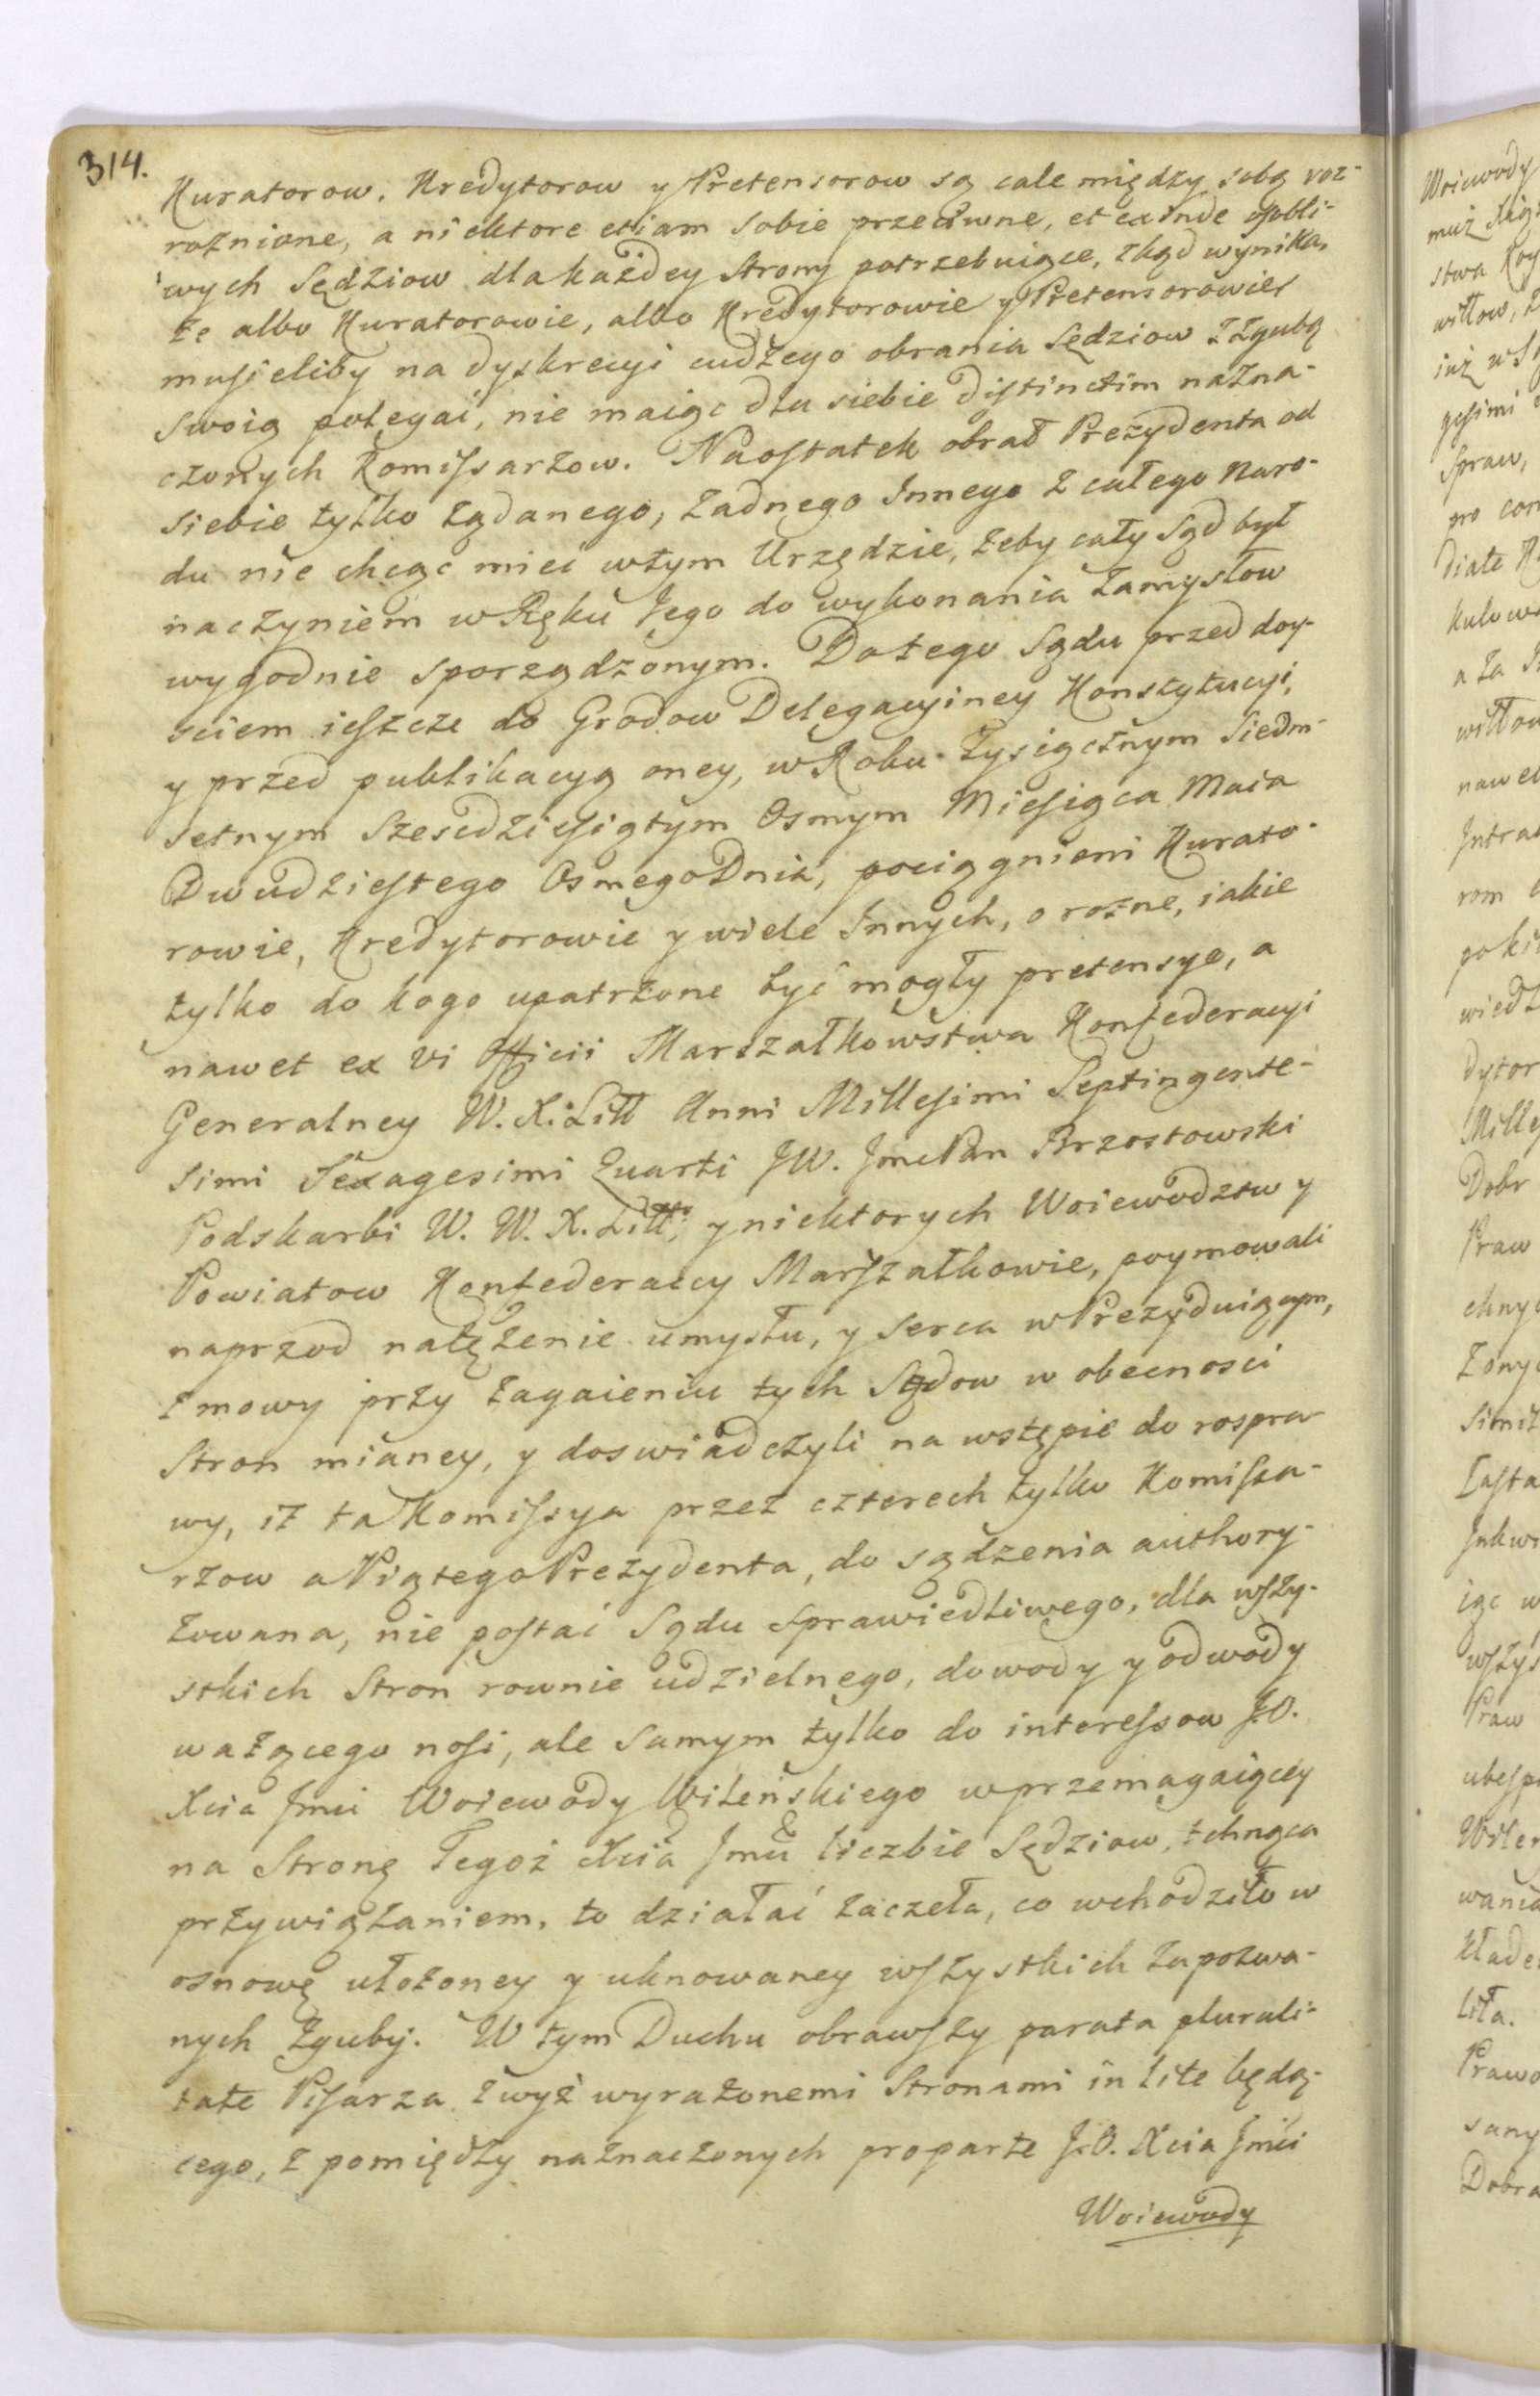 314.
Kuratorow, Kredytorow y Pretensorow są cale między sobą roz-
rożnione, a niektore etiam sobie przeciwne, et exinde osobli-
wych Sędziow dla każdey Strony potrzebuiące, zkąd wynika,
że albo Kuratorowie, albo Kredytorowie y Pretensorowie
musieliby na dyskrecyi cudzego obrania Sędziow z zgubą
swoią polegać, nie maiąc dla siebie distinctim nazna-
czonych Komissarzow. Naostatek obrał Prezydenta od
siebie tylko żądanego, żadnego Innego z całego Naro-
du nie chcąc mieć w tym Urzędzie, żeby cały Sąd był
naczyniem w Ręku Jego do wykonania zamysłow
wygodnie sporządzonym. Do tego Sądu przed doy-
sciem ieszcze do Grodow Delegacyiney Konstytucyi,
y przed publikacyą oney, w Roku Tysiącznym Siedm-
setnym Szescdziesiątym Osmym Miesiąca Maia
Dwudziestego Osmego Dnia, pociągnieni Kurato-
rowie, Kredytorowie y wiele Innych, o rożne, iakie
tylko do kogo upatrzone być mogły pretensye, a
nawet ex vi Officii Marszałkowstwa Konfederacyi
Generalney W. X. Litt Anni Millesimi Septingente-
simi Sexagesimi Quarti JW. Jmc Pan Brzostowski
Podskarbi W. W. X. Litt, y niektorych Woiewodztw y
Powiatow Konfederaccy Marszałkowie, poymowali
naprzod natężenie umysłu, y serca w Prezyduiącym,
z mowy przy zagaieniu tych Sądow w obecnosci
Stron mianey, y doswiadczyli na wstępie do rospra-
wy, iż ta Komissya przez czterech tylko Komissa-
rzow a Piątego Prezydenta, do sądzenia authory-
zowana, nie postać Sądu sprawiedliwego, dla wszy-
stkich Stron rownie udzielnego, dowody y odwody
ważącego nosi, ale samym tylko do interessow J.O.
Xcia Jmci Woiewody Wileńskiego w przemagaiącey
na Stronę Tegoż Xcia Jmci liczbie Sędziow, tchnąca
przywiązaniem, to działać zaczeła, co wchodziło w
osnowę ułożoney y uknowaney wszystkich zapozwa-
nych zguby. W tym Duchu obrawszy parata plurali-
tate Pisarza z wyż wyrażonemi Stronami in lite będą-
cego, z pomiędzy naznaczonych pro parte J.O. Xcia Jmci
Woiewody